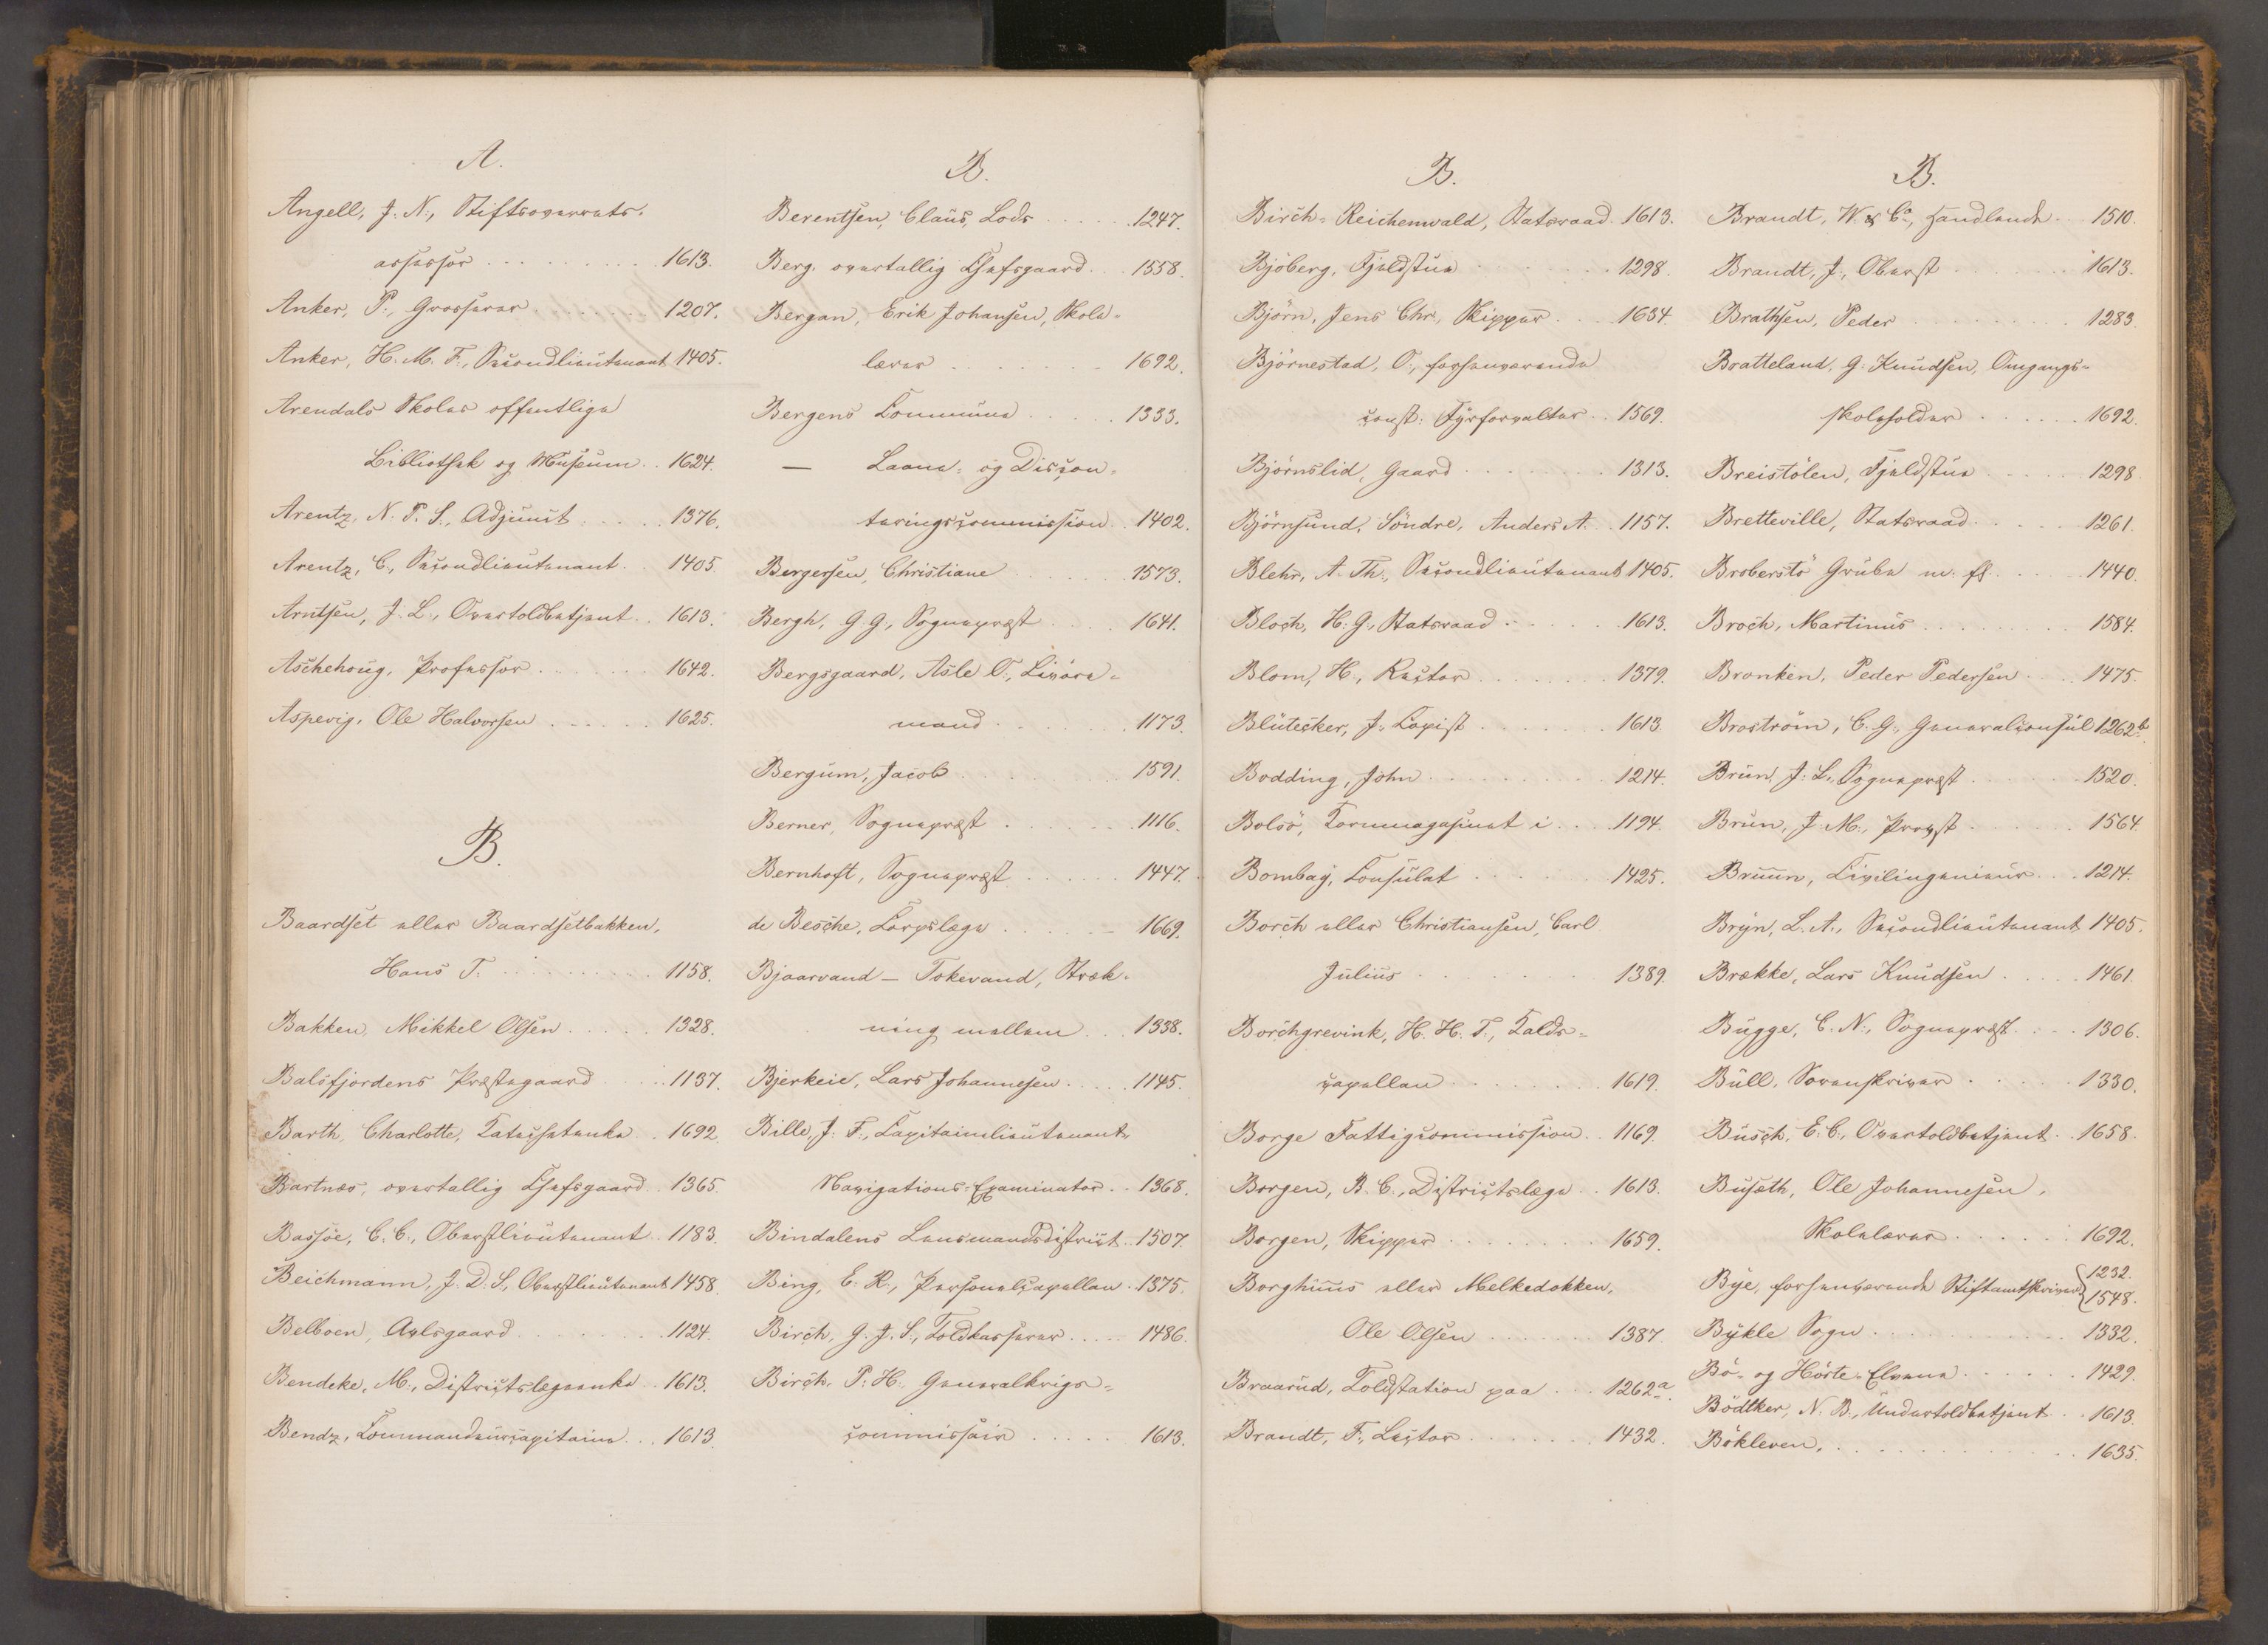 A.
Angell, J. N., Stiftsoverrets-
assessor 1613.
Anker, P., Grosserer 1207.
Anker, H. M. F., Secondlieutenant 1405.
Arendals Skoles offentlige
Bibliothek og Museum 1624.
Arentz, N. F. S., Adjunct 1376.
Arentz, C., Secondlieutenant 1405.
Arntsen, J. L., Overtoldbetjent 1613.
Aschehoug, Professor 1642.
Aspevig, Ole Halvorsen 1625.
B.
Baardset eller Baardsetbakken,
Hans T. 1158.
Bakken, Mikkel Olsen 1328.
Balsfjordens Præstegaard 1137.
Barth, Charlotte, Katechetenke 1692.
Bartnæs, overtallig Chefsgaard 1365.
Bassøe, C. C., Oberstlieutenant 1183.
Beichmann, J. D. S., Oberstlieutenant 1458.
Belboen, Avlsgaard 1124.
Bendeke, M., Districtslægeenke 1613.
Bendz, Commandeurcapitaine 1613.
B.
Berentsen, Claus, Lods 1247.
Berg, overtallig Chefsgaard 1558.
Bergan, Erik Johansen, Skole-
lærer 1692.
Bergens Commune 1333.
— Laane- og Discon-
teringscommission 1402.
Bergersen, Christiane 1573.
Bergh, G. G., Sognepræst 1641.
Bergsgaard, Asle O., Livøre-
mand 1173.
Bergum, Jacob 1591.
Berner, Sognepræst 1116.
Bernhoft, Sognepræst 1447.
de Besche, Corpslæge 1669.
Bjaarvand — Tokevand, Stræk-
ning mellem 1338.
Bjerkeie, Lars Johannesen 1145.
Bille, J. F., Capitainlieutenant,
Navigations-Examinator 1368.
Bindalens Lensmandsdistrict 1507.
Bing, E. R., Personelcapellan 1375.
Birch, G. J. S., Toldkasserer 1486.
Birch, P. H., Generalkrigs-
commissair 1613.
B.
Birch-Reichenwald, Statsraad 1613.
Bjöberg, Fjeldstue 1298.
Björn, Jens Chr., Skipper 1634.
Björnestad, O., forhenværende
const. Fyrforvalter 1569.
Björnslid, Gaard 1313.
Björnsund, Söndre, Anders A. 1157.
Blehr, A. Th., Secondlieutenant 1405.
Bloch, H. G., Statsraad 1613.
Blom, H., Rector 1379.
Blütecker, J., Copist 1613.
Bodding, John 1214.
Bolsö, Kornmagasinet i 1194.
Bombay, Consulat 1425.
Borch eller Christiansen, Carl
Julius 1389.
Borchgrevink, H. H. T., Kalds-
capellan 1619.
Borge Fattigcommission 1169.
Borgen, B. C., Districtslæge 1613.
Borgen, Skipper 1659.
Borghuus eller Melkedokken,
Ole Olsen 1387.
Braarud, Toldstation paa 1262a.
Brandt, F., Lector 1432.
B.
Brandt, W. & Co., Handlende 1510.
Brandt, J., Oberst 1613.
Brathsen, Peder 1283.
Bratteland, G. Knudsen, Omgangs-
skoleholder 1692.
Breistölen, Fjeldstue 1298
Bretteville, Statsraad 1261.
Broberstö Grube m. fl. 1440.
Broch, Martinus 1584.
Bronken, Peder Pedersen 1475.
Broström, C. G., Generalconsul 1262b.
Brun, J. L., Sognepræst 1520.
Brun, J. M., Provst 1564.
Bruun, Civilingenieur 1214.
Bryn, L. A., Secondlieutenant 1405.
Brække, Lars Knudsen 1461.
Bugge, C. N., Sognepræst 1306.
Bull, Sorenskriver 1330.
Busch, E. C., Overtoldbetjent 1658.
Busæth, Ole Johannesen,
Skolelærer 1692.
Bye, forhenværende Stiftamtskriver 1232.
1548.
Bykle Sogn 1332.
Bö- og Hörte-Elvene 1429.
Bödtker, N. B., Undertoldbetjent 1613.
Bökleven, 1635.